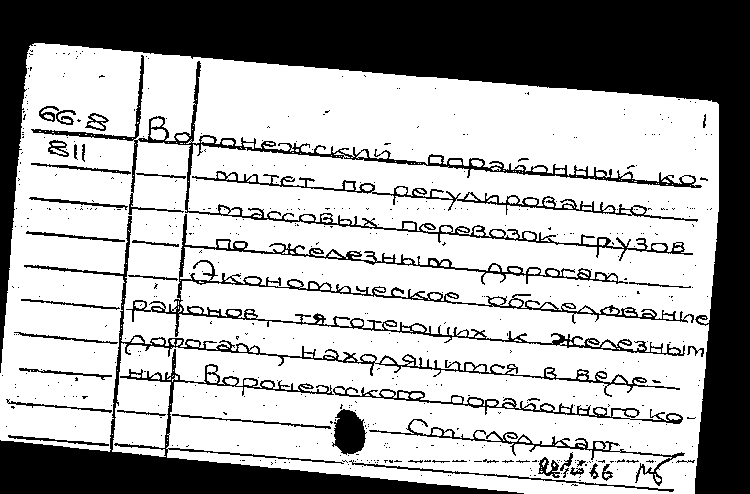 1
66.8
811
Воронежский порайонный ко-
митет по регулированию
массовых перевозок грузов
по железным дорогам.
Экономическое обследование
районов, тяготеющих к железным
дорогам, находящимся в веде-
нии Воронежского порайонного ко-
См. след. карт.